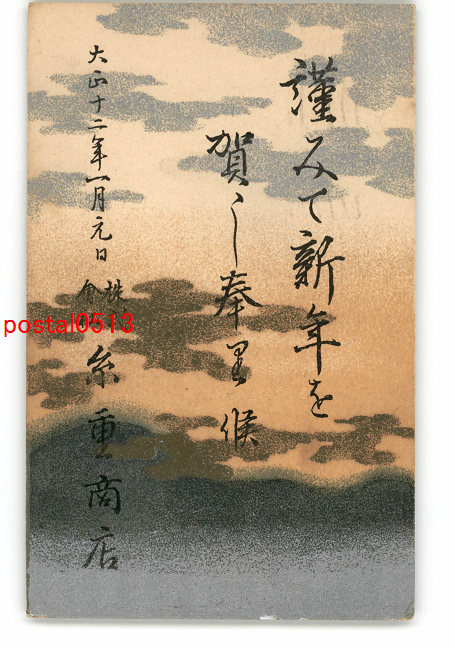 謹みて新年を
賀し奉里候
大正十二年一月元日
株
會
糸重商店
postal0513